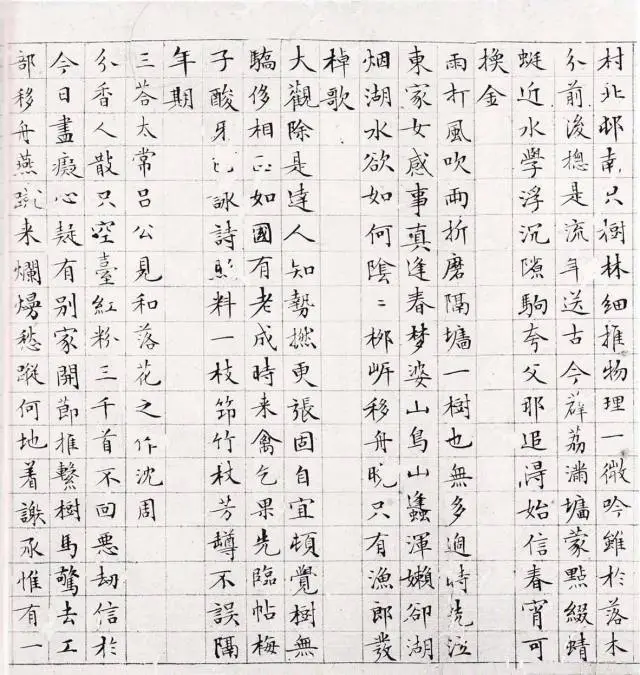 村北邨南只樹林細推物理一微吟雖於落木
分前後揔是流年送古今薜荔滿墻蒙點綴蜻
蜓近水學浮沉隙駒夸父那追得始信春宵可
換金
雨打風吹兩折磨隔墻一樹也無多過時先泣
東家女感事真逢春梦婆山鳥山蠭渾嬾卻湖
烟湖水欲如何陰〻桞岍移舟晚只有漁郎發
棹歌
大觀除是達人知勢撚更張固自宜頓覺樹無
驕侈相正如國有老成時来禽乞果先臨帖梅
子酸牙已詠詩點料一枝笻竹枝芳罇不誤隔
年期
三荅太常呂公見和落花之作沈周
分香人散只空臺紅粉三千首不回悪劫信於
今日盡癡心疑有别家開節推繫樹馬驚去工
部移舟燕蹴来爛熳愁蹤何地着謝承惟有一